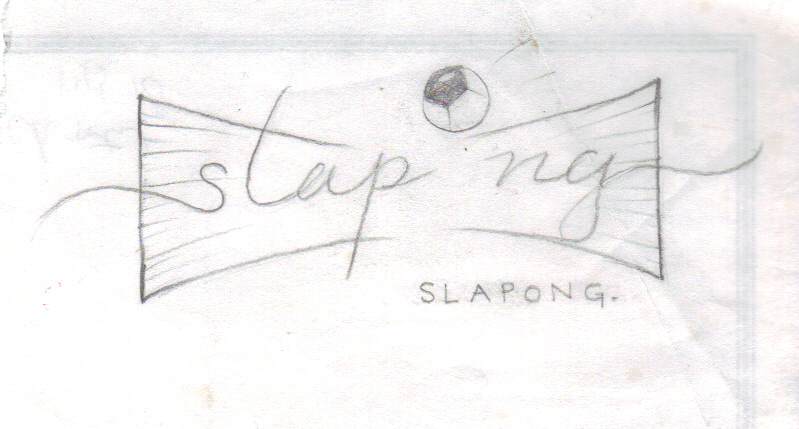 slap ng
SLAPONG.